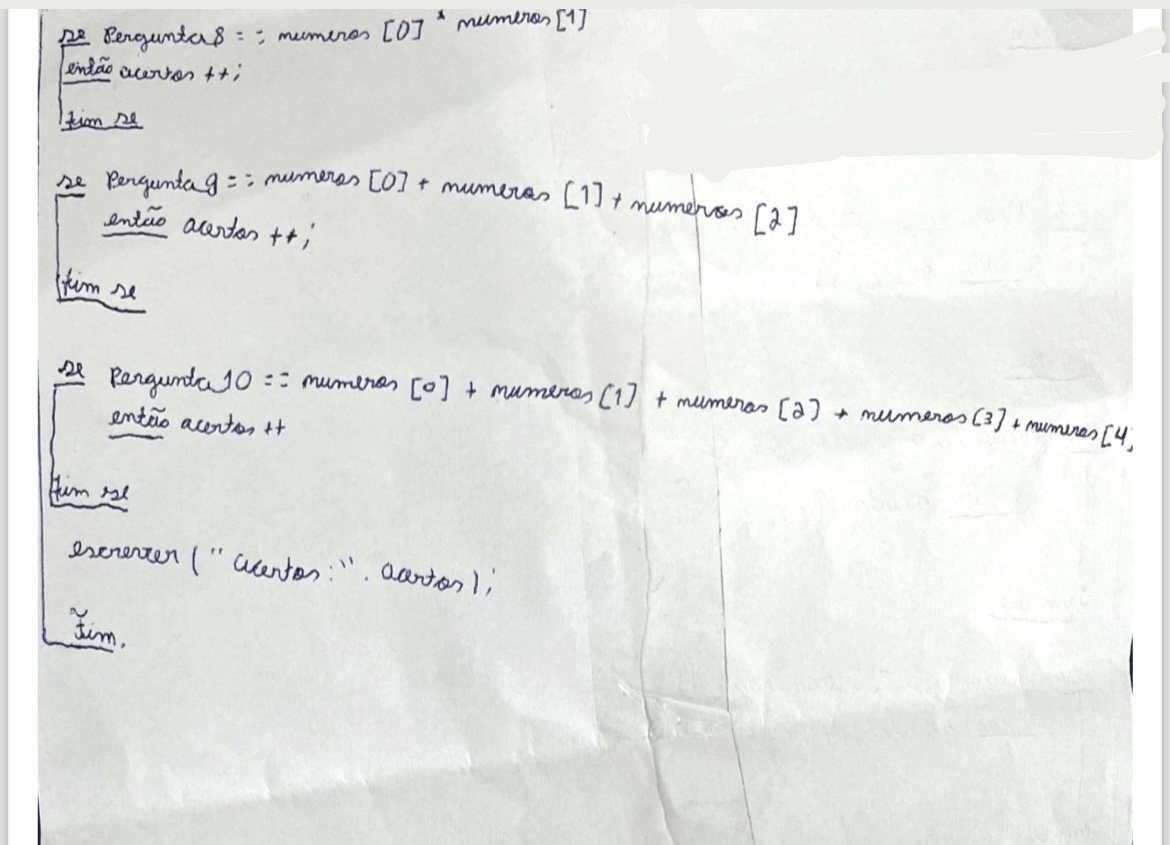 se Pergunta 8 == numeros [0] * numeros [1]
então acertos ++;
fim se
se Pergunta 9 == numeros [0] + numeros [1] + numeros [2]
então acertos ++;
fim se
se Pergunta 10 == numeros [0] + numeros [1] + numeros [2] + numeros [3] + numeros [4]
então acertos ++
fim se
escrever ("acertos:". acertos);
Fim.